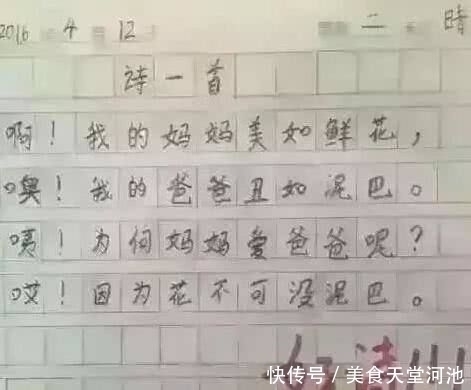 2016 4 12 二 晴
诗一首
啊！我的妈妈美如鲜花，
噢！我的爸爸丑如泥巴。
咦！为何妈妈爱爸爸呢？
哎！因为花不可没泥巴。
快传号／美食天堂河池